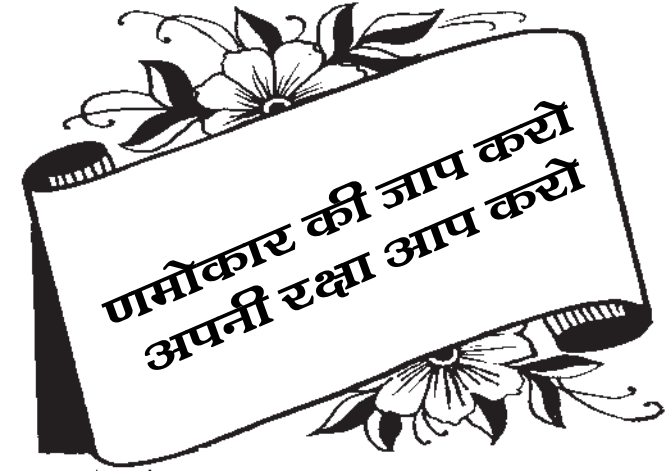 णमोकार की जाप करो
अपनी रक्षा आप करो